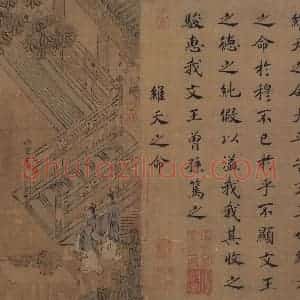 維天之命
之命於穆不已於乎不顯文王
之德之純假以溢我我其收之
駿惠我文王曾孫篤之
維天之命